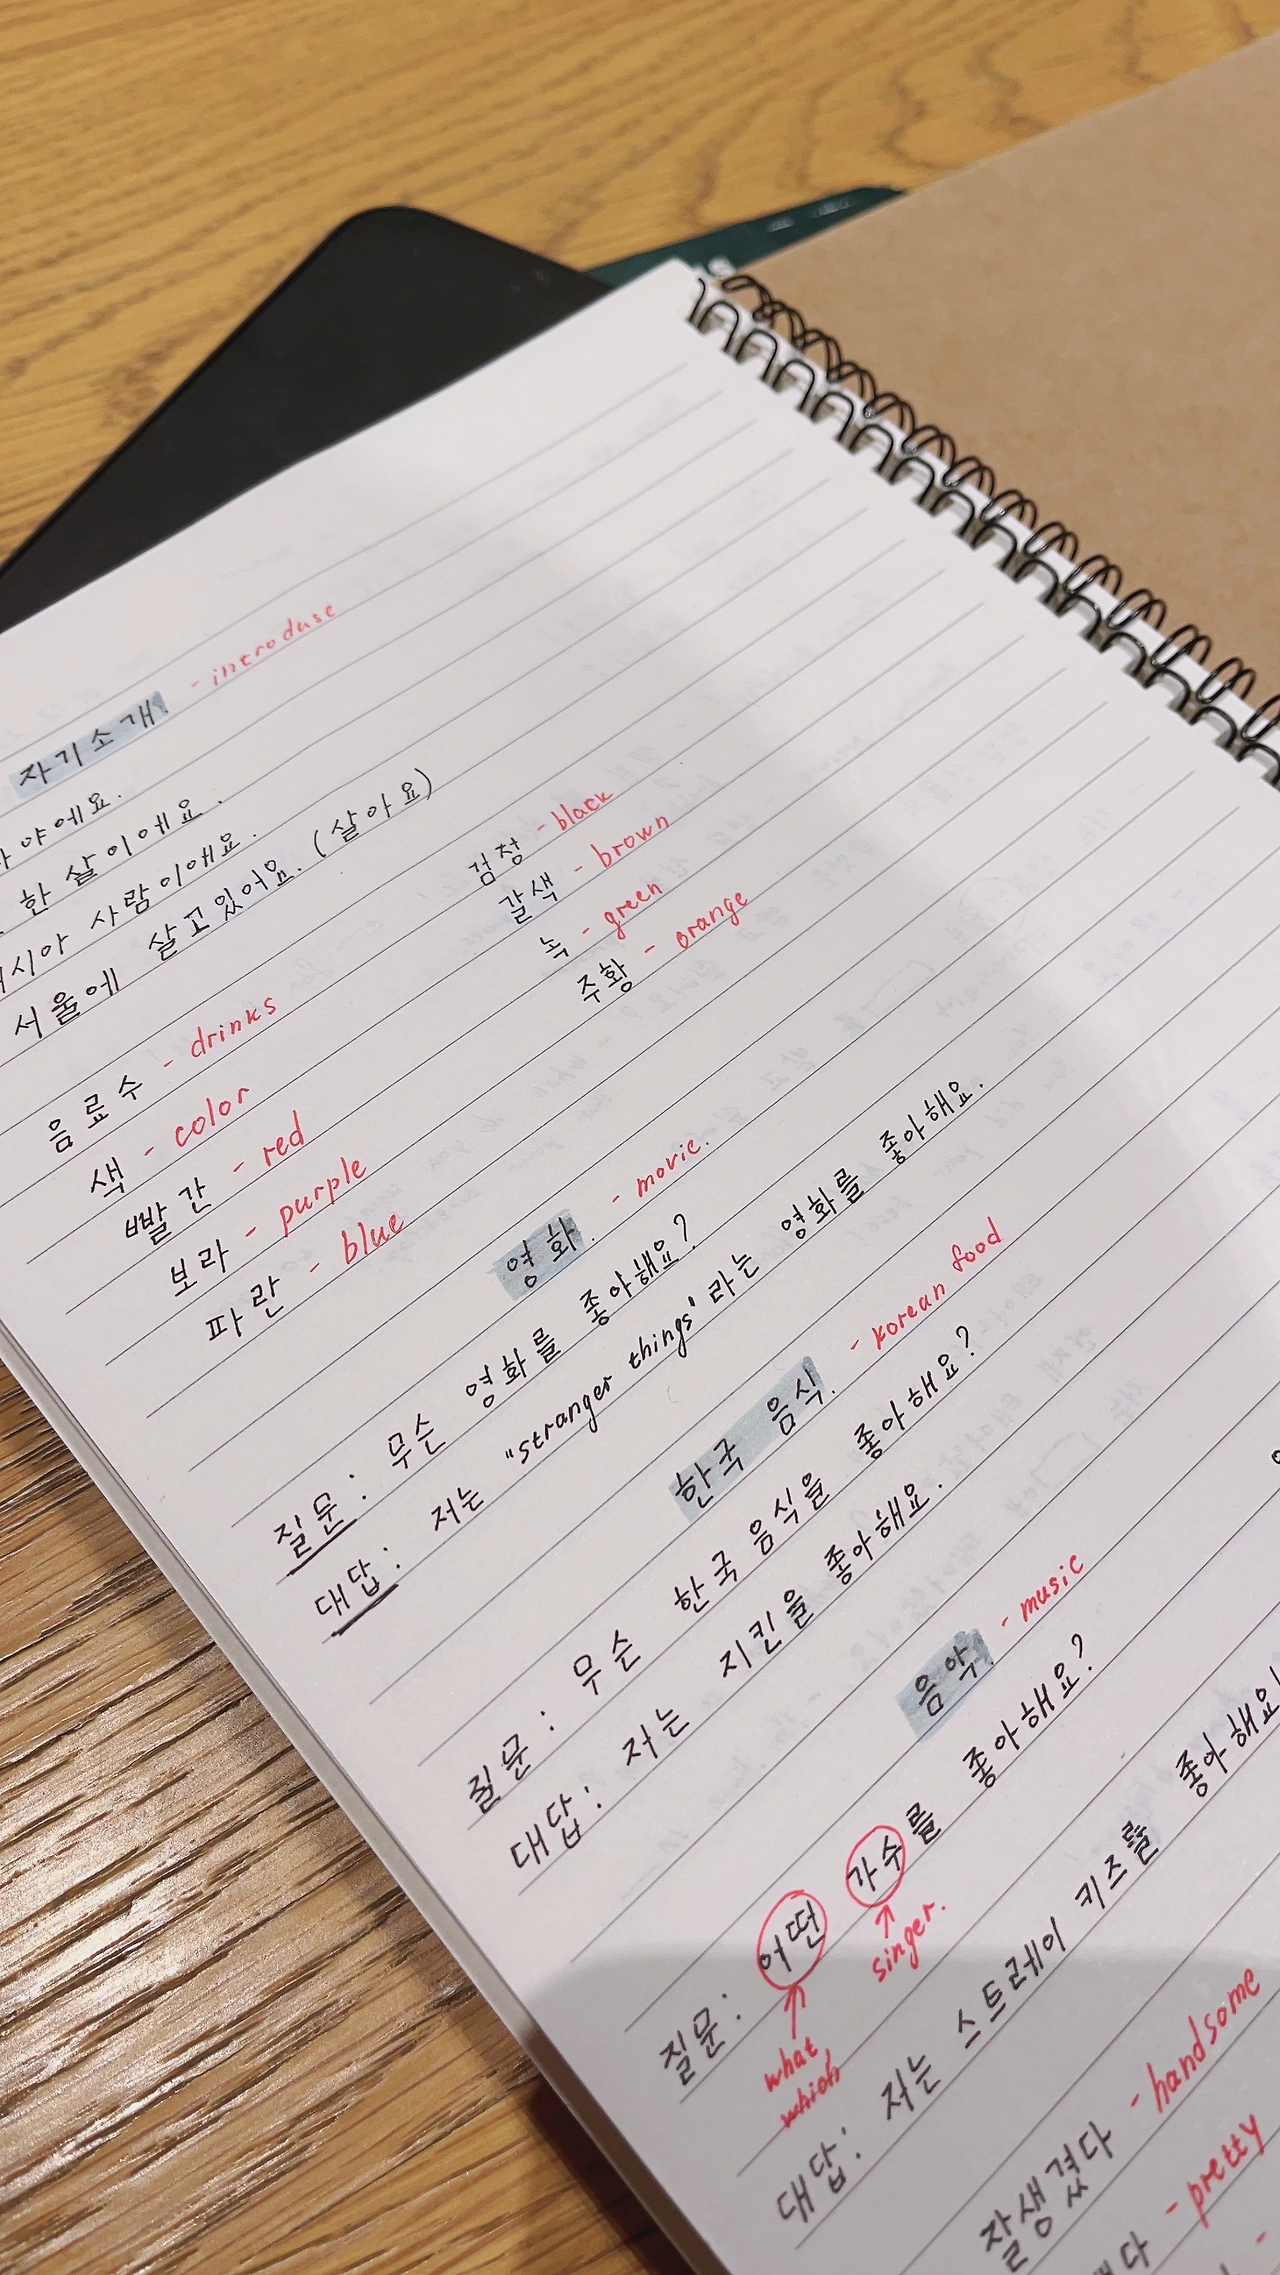 자기소개. - introduse
야에요.
한 살이에요.
시아 사람이에요.
서울에 살고있어요. (살아요)
음료수 - drinks
색 - color
빨간 - red
보라 - purple
파란 - blue
검정 - black
갈색 - brown
녹 - green
주황 - orange
영화. - movie.
질문: 무슨 영화를 좋아해요?
대답: 저는 "stranger things"라는 영화를 좋아해요.
한국 음식. - korean food
질문: 무슨 한국 음식을 좋아해요?
대답: 저는 치킨을 좋아해요.
음악. - music
질문: 어떤 가수를 좋아해요?
what
which
singer.
대답: 저는 스트레이 키즈를 좋아해요
잘생겼다 - handsome
다 - pretty